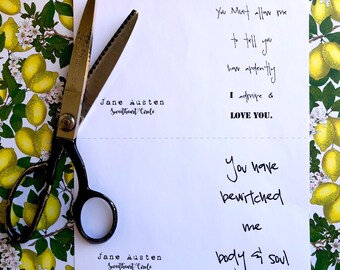 You Must allow me
to tell you
how ardently
I admire &
LOVE YOU.
Jane Austen
Sweetheart Cards
You have
bewitched
me
body & soul
Jane Austen
Sweetheart Cards